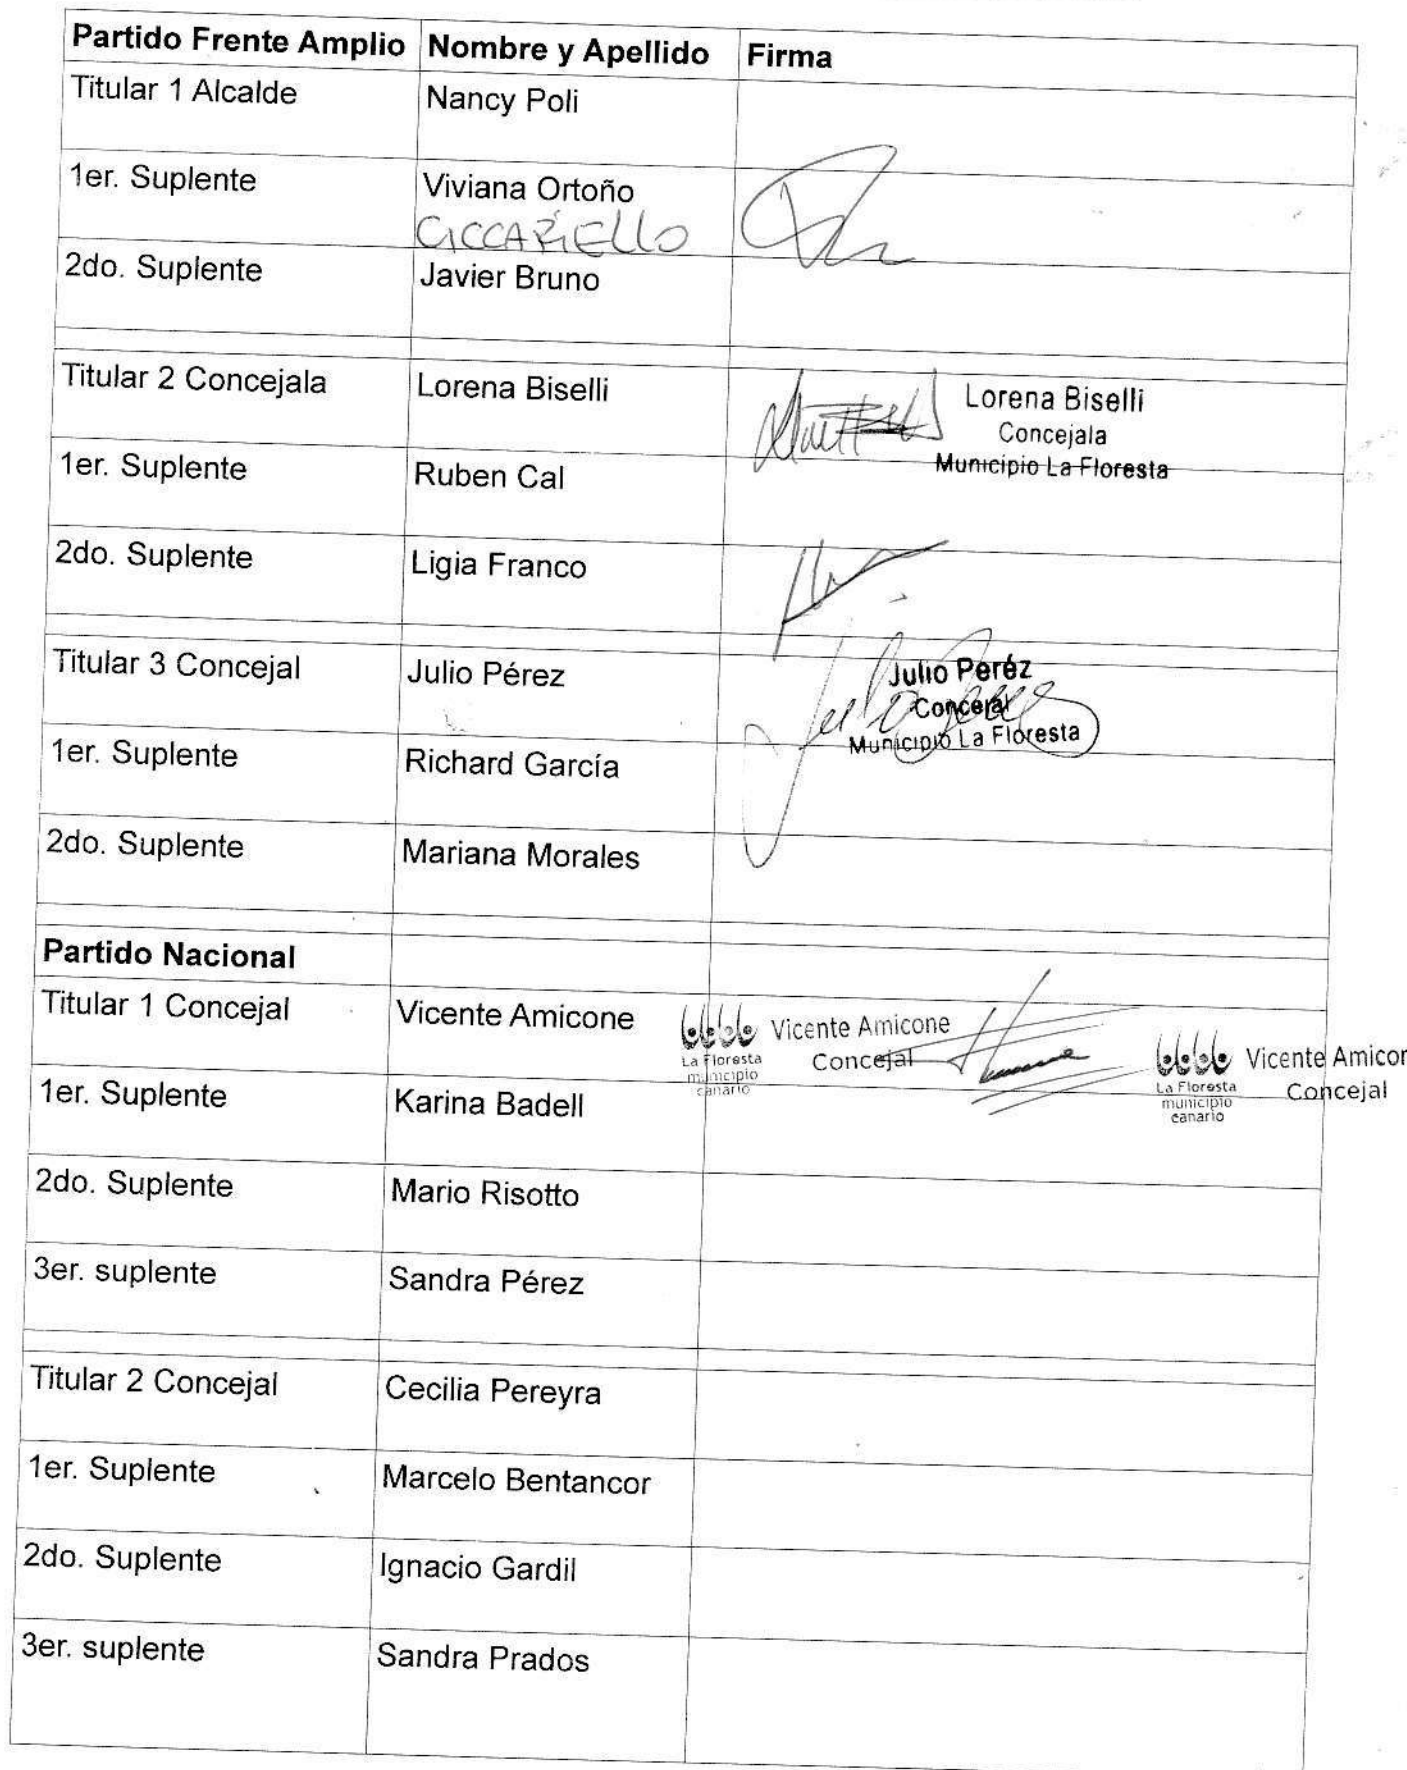 Partido Frente Amplio Nombre y Apellido Firma
Titular 1 Alcalde Nancy Poli
1er. Suplente Viviana Ortoño
CICCARIELLO
2do. Suplente Javier Bruno
Titular 2 Concejala Lorena Biselli Lorena Biselli
Concejala
Municipio La Floresta
1er. Suplente Ruben Cal
2do. Suplente Ligia Franco
Titular 3 Concejal Julio Pérez Julio Peréz
Concejal
Municipio La Floresta
1er. Suplente Richard García
2do. Suplente Mariana Morales
Partido Nacional
Titular 1 Concejal Vicente Amicone Vicente Amicone
Concejal
La Floresta
municipio
canario
Vicente Amicon
Concejal
La Floresta
municipio
canario
1er. Suplente Karina Badell
2do. Suplente Mario Risotto
3er. suplente Sandra Pérez
Titular 2 Concejal Cecilia Pereyra
1er. Suplente Marcelo Bentancor
2do. Suplente Ignacio Gardil
3er. suplente Sandra Prados